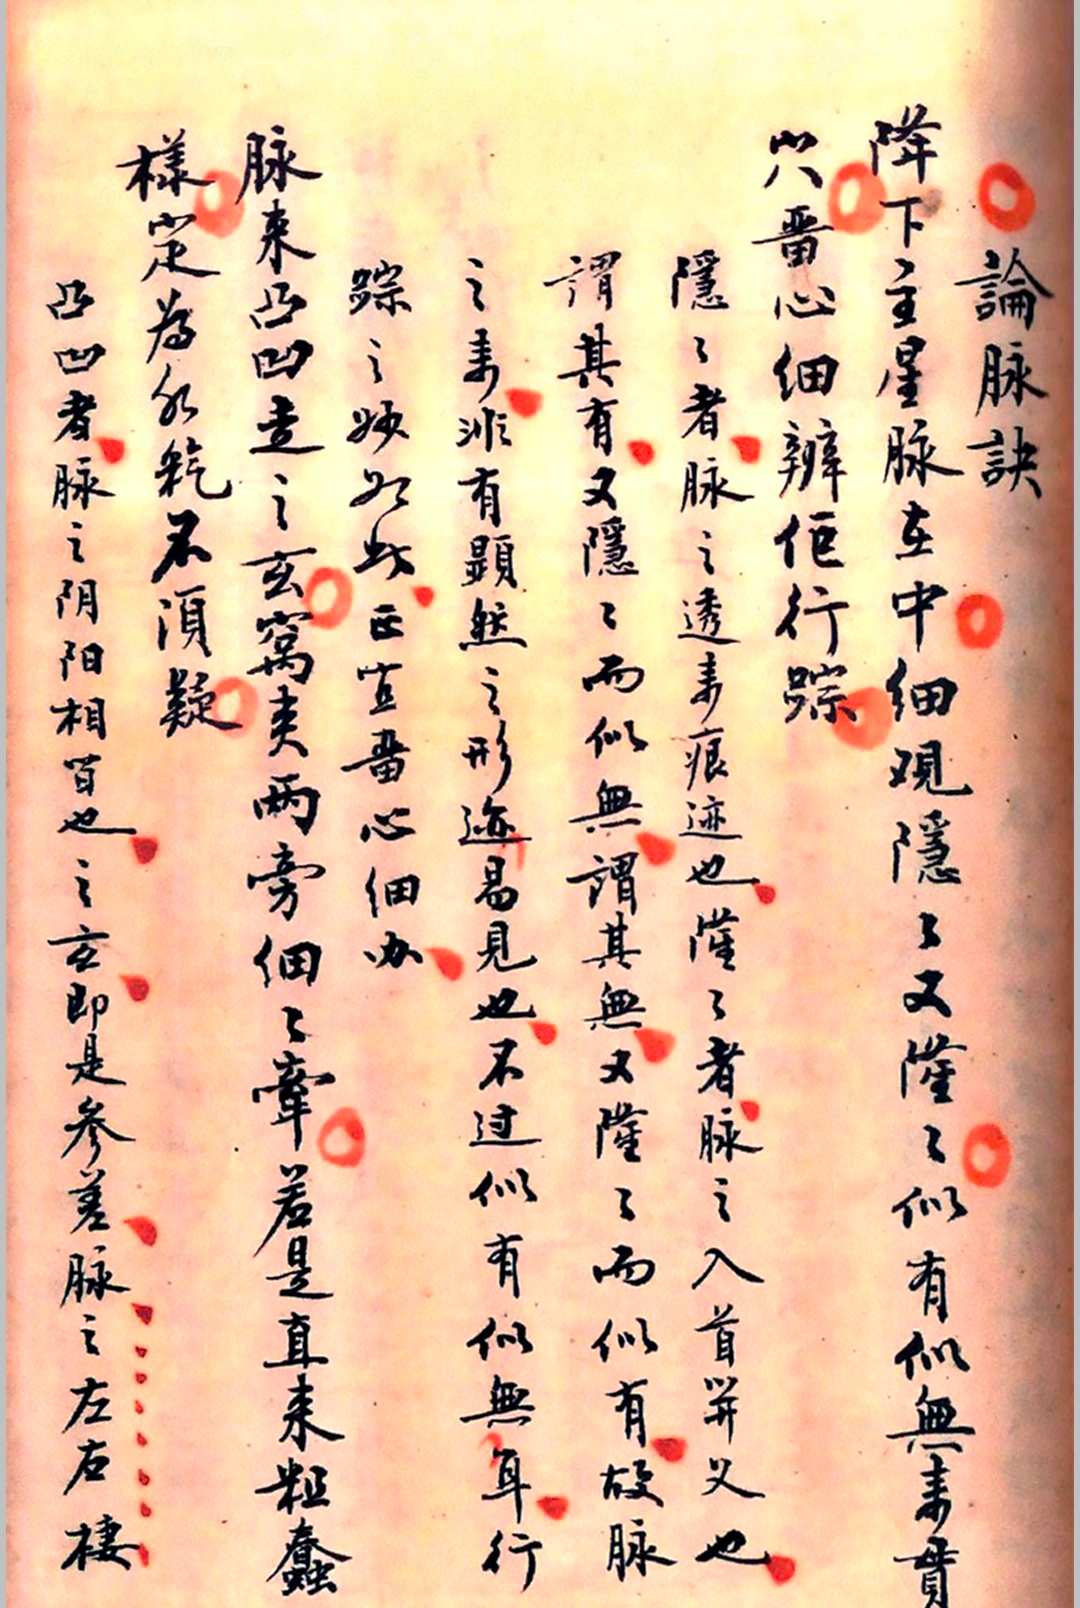 論脉訣
降下主星脉在中細观隱々又隴々似有似無来貫
穴畱心細辨佢行踪
隱々者脉之透来痕迹也隴々者脉之入首開义也
謂其有又隱々而似無謂其無又隴々而似有故脉
之来非有顕然之形迹易見也不过似有似無耳行
踪之妙如此正宜畱心细办
脉来凸凹走之玄窩夹两旁细々牽若是直来粗蠢
樣定為休乾不須疑
凸凹者脉之阴阳相間也之玄即是参差脉之左右棲